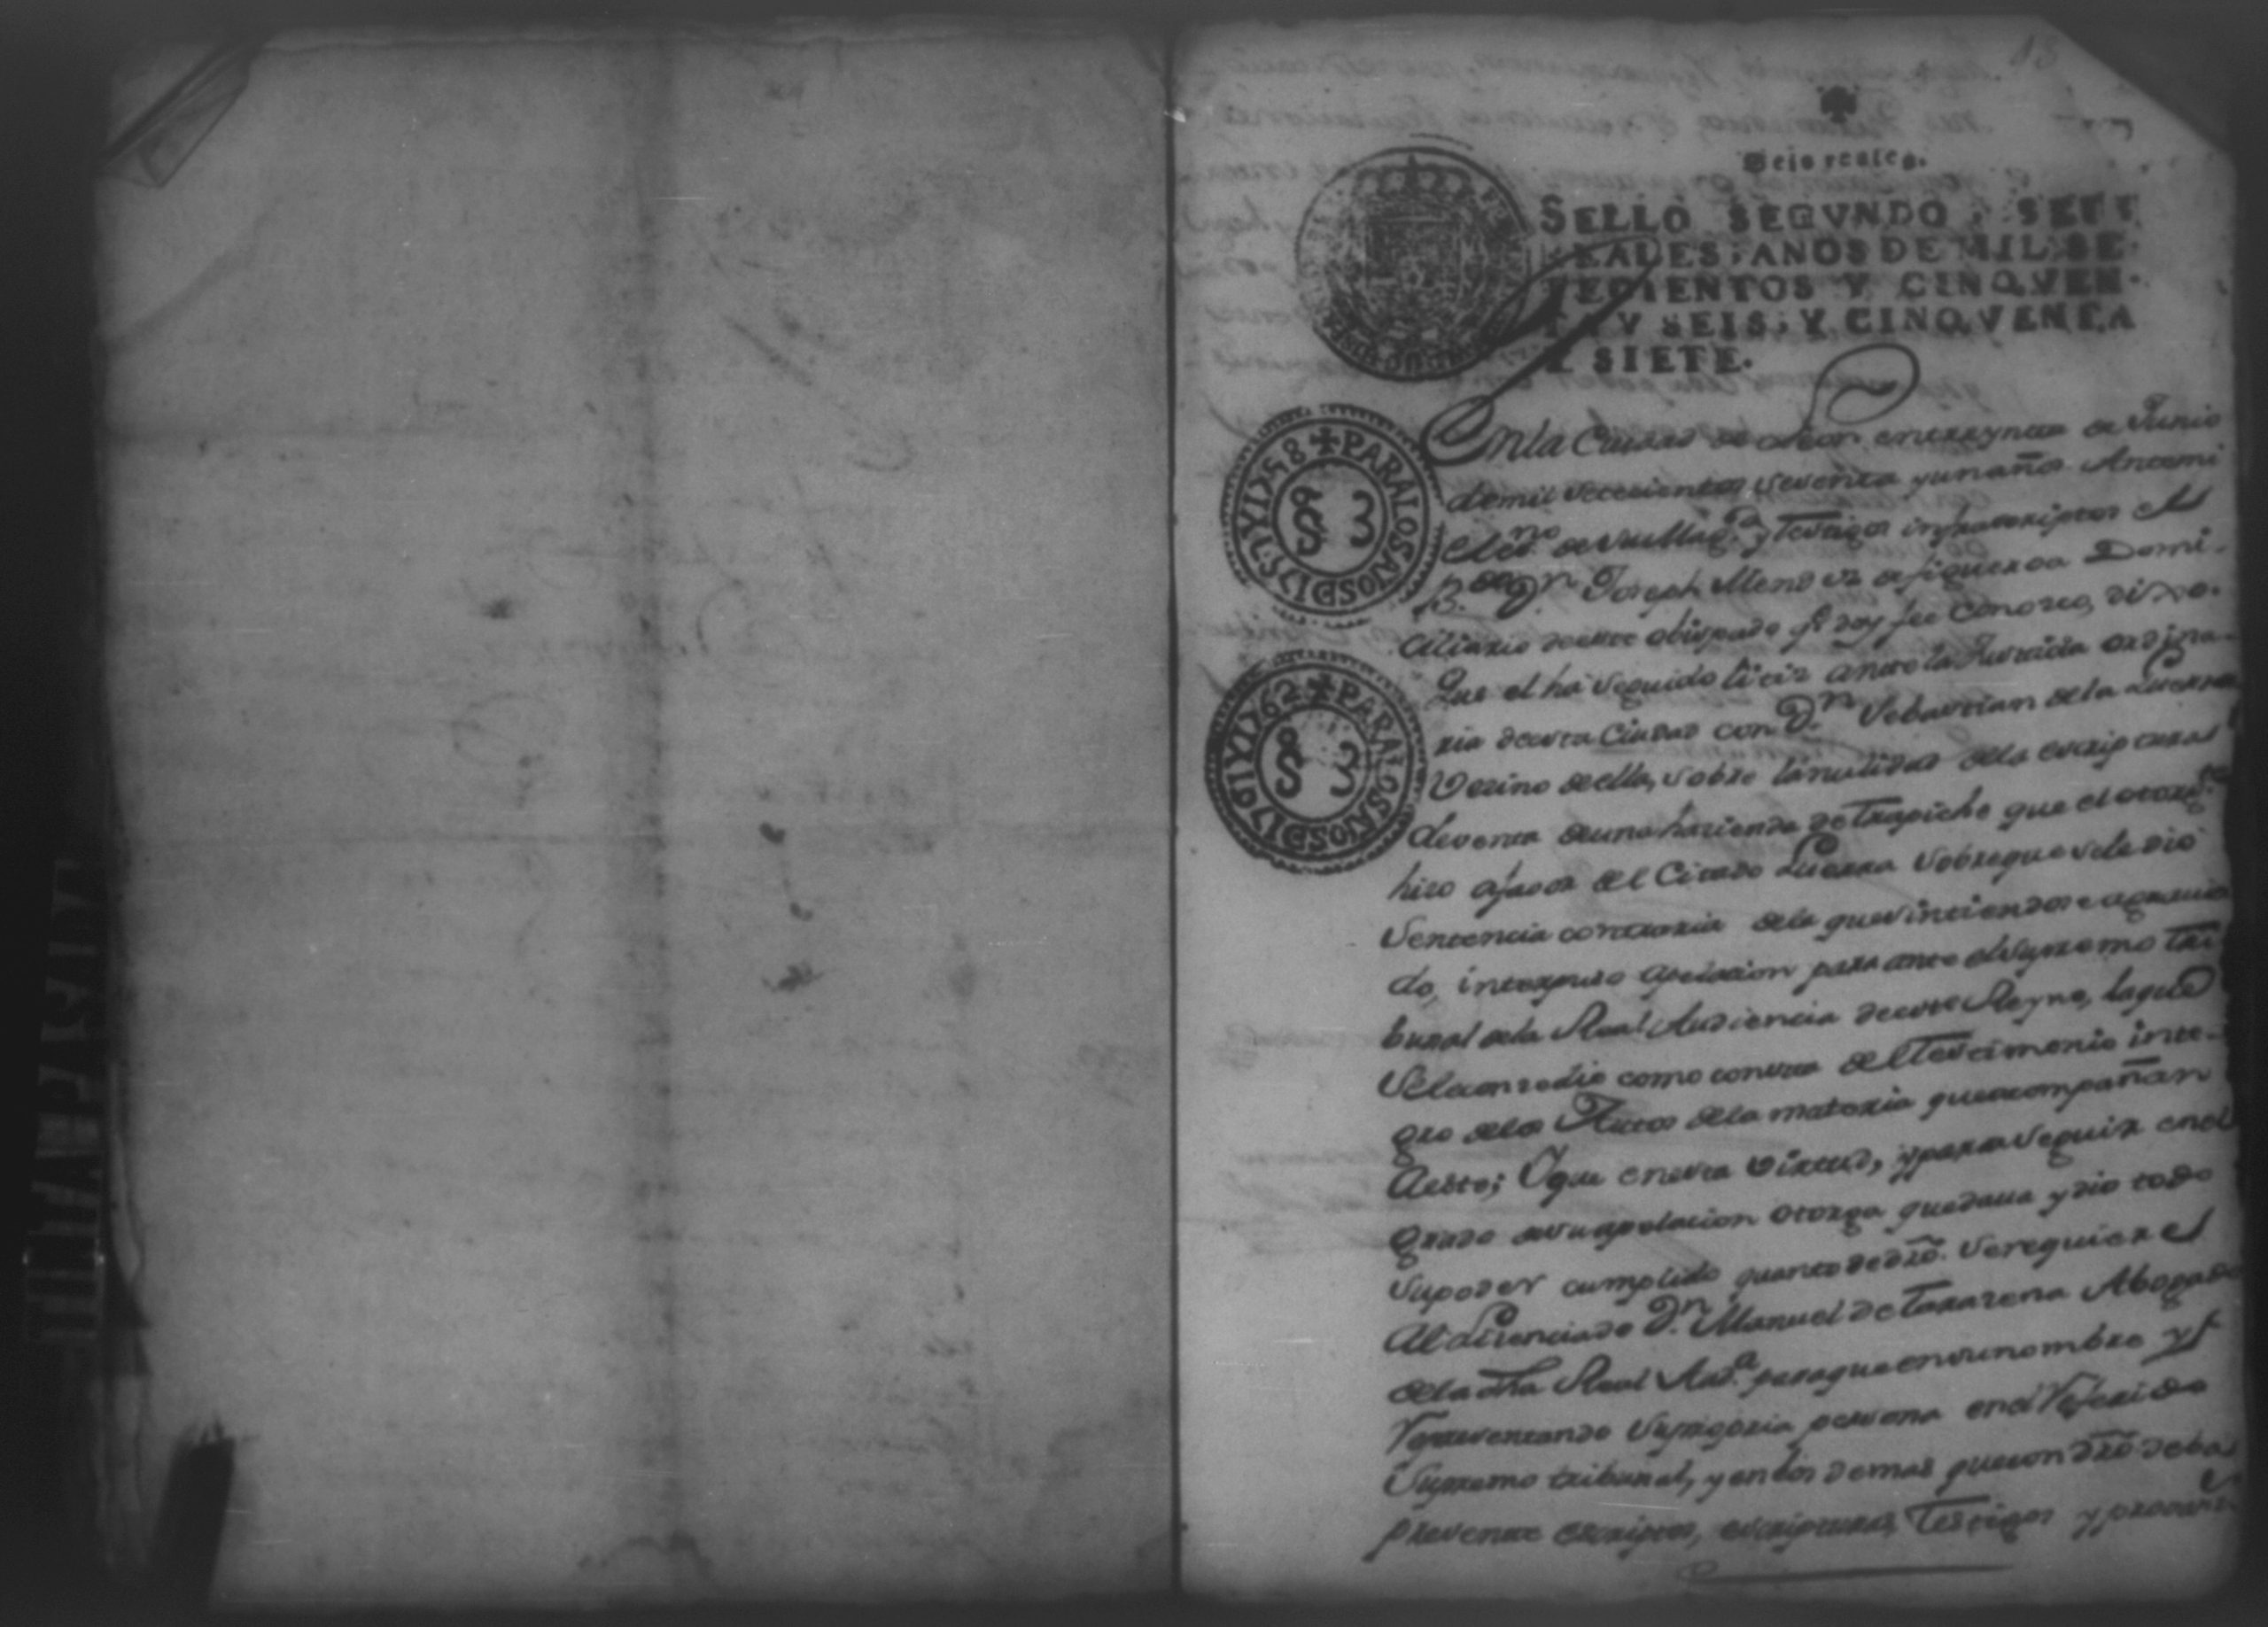 18
Seis reales.
SELLO SEGVNDO, SEIS
REALES, ANOS DE MIL SE-
TECIENTOS Y CINQVEN-
TA Y SEIS, Y CINQVENTA
Y SIETE.
✠PARALOSAÑOSD1757Y1758
✠PARALOSAÑOSD1761Y1762
Enla Ciudad de Leon en treynta de Junio
demil setecientos sesenta y un años. Antemi
el es.no de su Mag.d y testigos infraescriptos el
B.er D.n Joseph Mendez de figueroa Domi-
ciliario deeste obispado q.e doy fee conozco, dixo.
Que el ha seguido litis ante la Justicia ordina-
ria deesta Ciudad con D.n Sebastian dela Guerra
Vezino deella, sobre la nulidad dela escriptura
de venta de una hazienda de trapiche que el otorg.te
hizo afavor del Citado Guerra sobreque sele dio
Sentencia contraria dela que sintiendose agravia
do, interpuso apelacion para ante el supremo tri-
bunal dela Real Audiencia deeste Reyno, la que
sele concedio como consta del testimonio inte-
gro delos Autos dela materia que acompañan
aeste; Yque en esta virtud, y para seguir en el
grado de su apelacion otorga que dava y dio todo
su poder cumplido quanto de dro. se requiere
Al Licenciado D.n Manuel de Tararena Abogado
dela dha Real Aud.a para que en su nombre y
representando su propria persona en el referido
Supremo tribunal, y en los demas que con dro. deba
presente escriptos, escripturas, testigos y